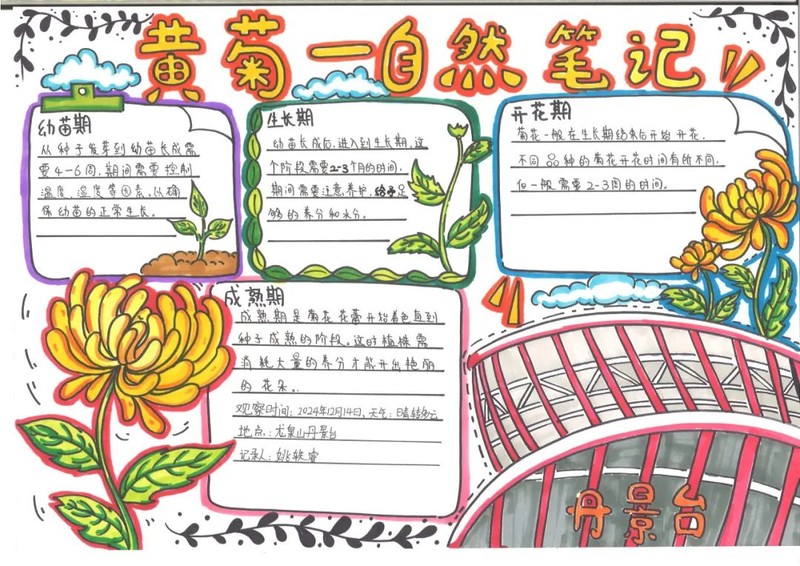 黄菊一自然笔记
幼苗期
从种子发芽到幼苗长成需
要4-6周,期间需要控制
温度、湿度等因素,以确
保幼苗的正常生长。
生长期
幼苗长成后,进入到生长期,这
个阶段需要2-3个月的时间,
期间需要注意养护,给予足
够的养分和水分。
开花期
菊花一般在生长期结束后开始开花,
不同品种的菊花开花时间有所不同,
但一般需要2-3周的时间。
成熟期
成熟期是菊花花蕾开始着色直到
种子成熟的阶段。这时植株需
消耗大量的养分才能开出艳丽
的花朵。
观察时间:2024年12月14日,天气:晴转多云
地点:龙泉山丹景台
记录人:姚轶睿
丹景台